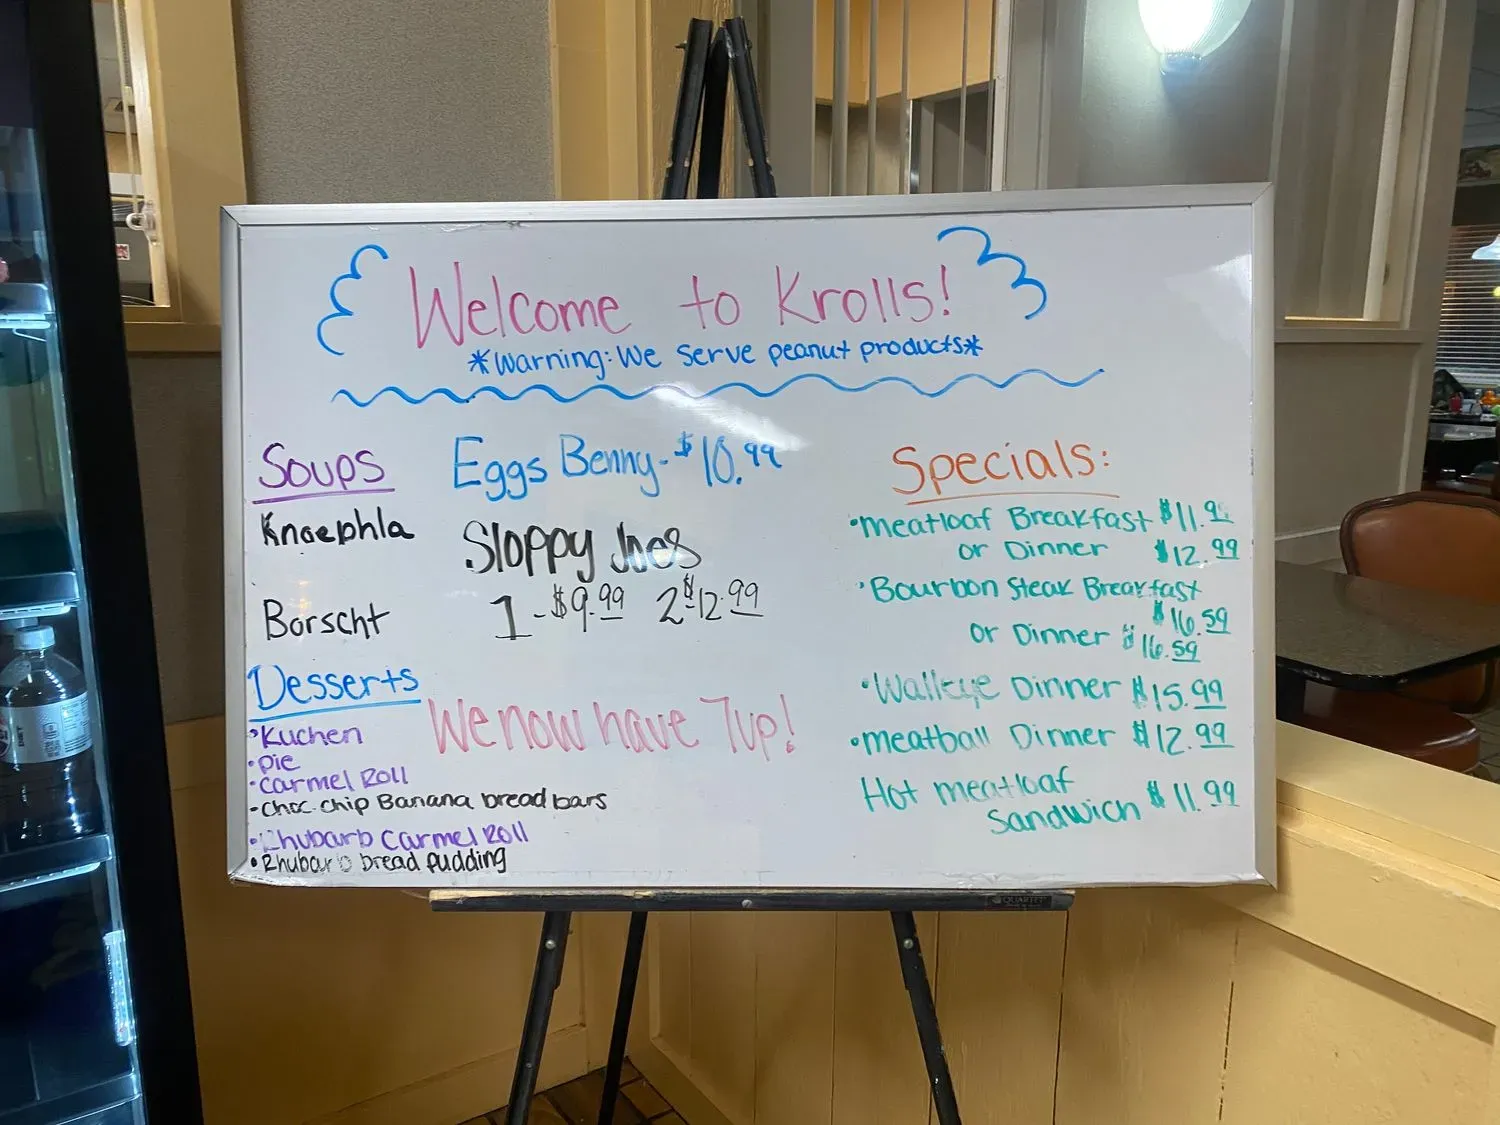 Welcome to Krolls!
*Warning: We serve peanut products*
Soups
Knaephla
Borscht
Desserts
•Kuchen
•pie
•carmel Roll
•choc. chip Banana bread bars
•Rhubarb Carmel Roll
•Rhubarb bread pudding
Eggs Benny - $10.99
Sloppy Joes
1 - $9.99 2 - $12.99
We now have 7up!
Specials:
•meatloaf Breakfast $11.99
or Dinner $12.99
•Bourbon Steak Breakfast
$16.59
or Dinner $16.59
•Walleye Dinner $15.99
•meatball Dinner $12.99
Hot meatloaf
Sandwich $11.99
QUARTET
DIET